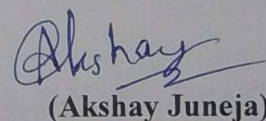 Akshay
(Akshay Juneja)